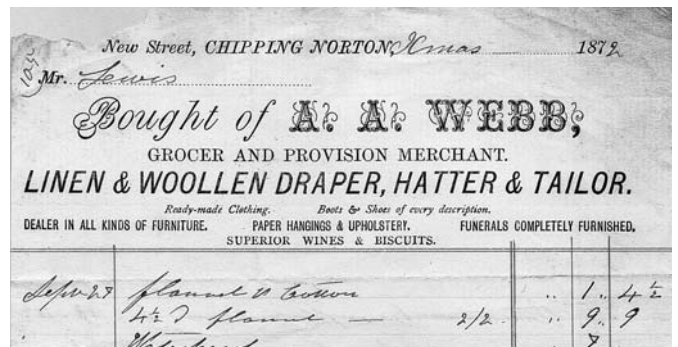 New Street, CHIPPING NORTON, Xmas 1872
Mr. Lewis
Bought of A. A. WEBB,
GROCER AND PROVISION MERCHANT.
LINEN & WOOLLEN DRAPER, HATTER & TAILOR.
Ready-made Clothing. Boots & Shoes of every description.
DEALER IN ALL KINDS OF FURNITURE. PAPER HANGINGS & UPHOLSTERY. FUNERALS COMPLETELY FURNISHED.
SUPERIOR WINES & BISCUITS.
flannel Cotton .. 1 .. 4 ½
4½ flannel — 2/2 .. 9 .. 9